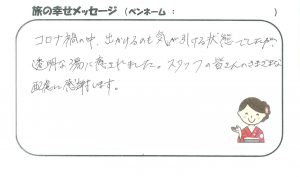 旅の幸せメッセージ（ペンネーム：　　　　　　）
コロナ禍の中、出かけるのも気が引ける状態でしたが、
透明な湯に癒されました。スタッフの皆さんのさまざまな
配慮に感謝します。